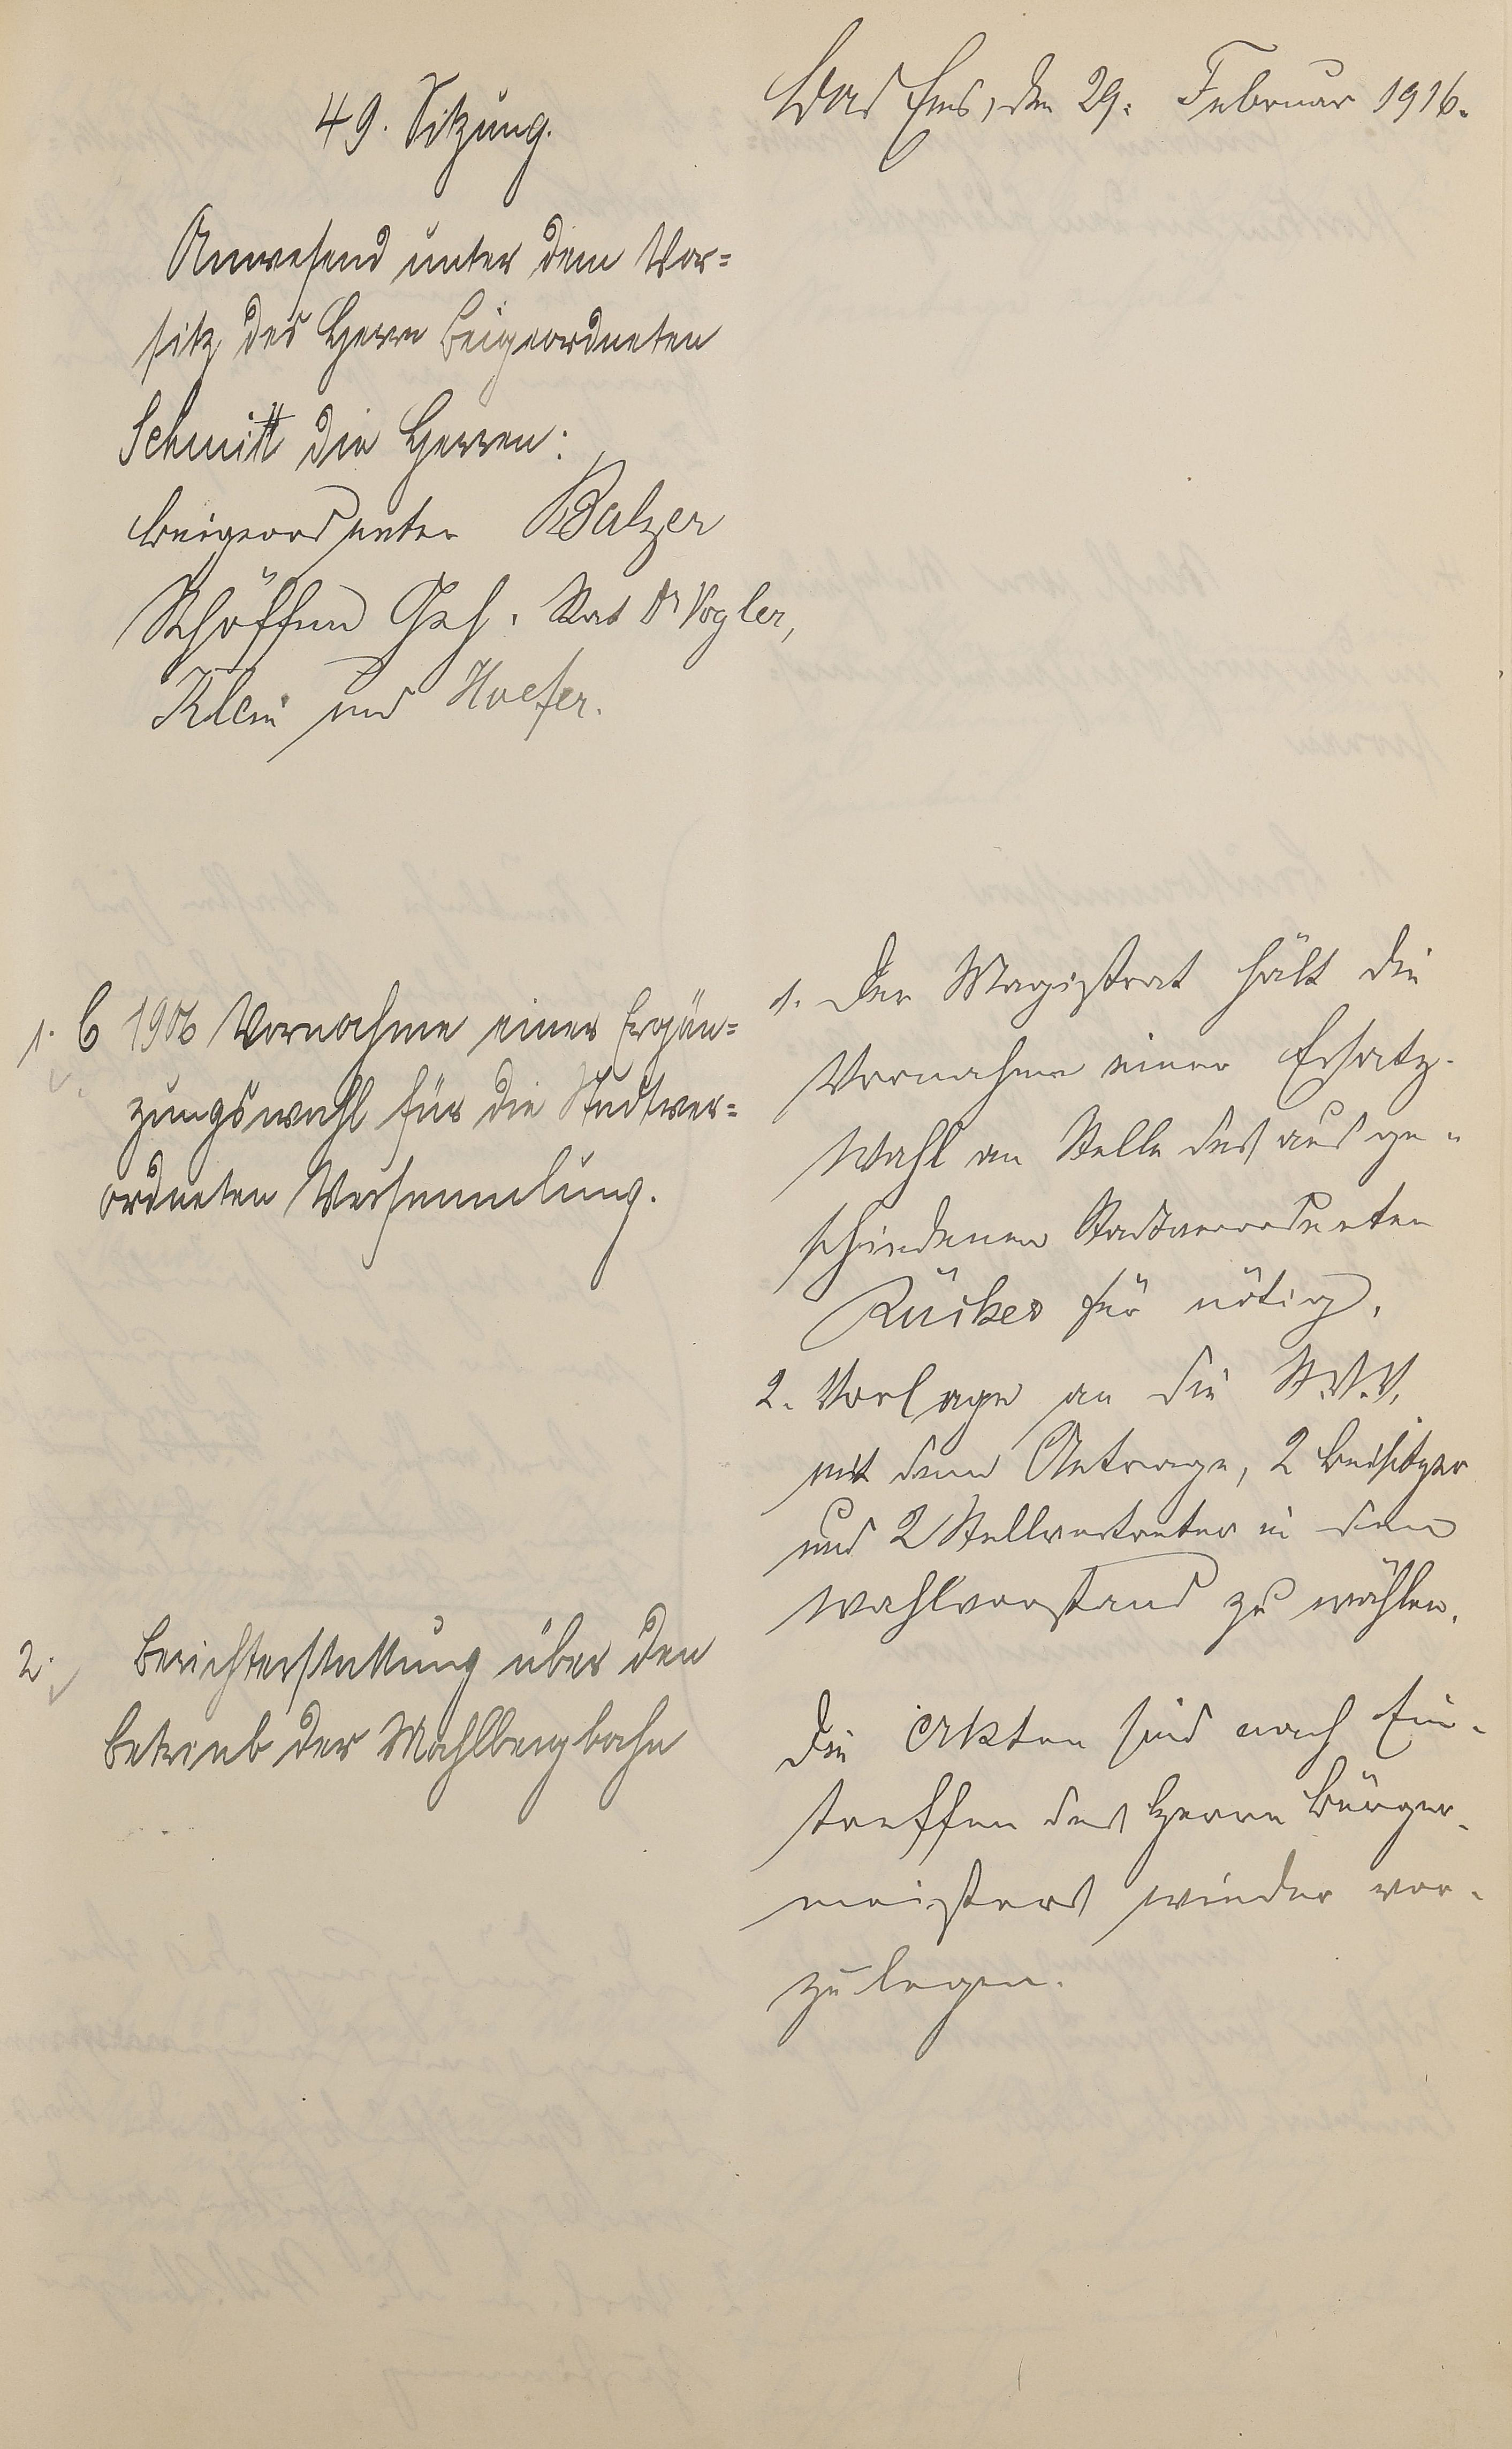 49. Sitzung.
Bad Ems, den 29. Februar 1916.
Anwesend unter dem Vor=
sitz des Herrn Beigeordneten
Schmitt die Herren:
Beigeordneter Balzer
Schöffen Geh. Rat Dr Vogler,
Klein und Hoefer.
1. C 1906 Vornahme einer Ergän=
zungswahl für die Stadtver=
ordneten Versammlung.
1. Der Magistrat hält die
Vornahme einer Ersatz-
wahl an Stelle des ausge-
schiedenen Stadtverordneten
Rücker für nötig.
2. Vorlage an die St.V.V.
mit dem Antrage, 2 Beisitzer
und 2 Stellvertreter in den
Wahlvorstand zu wählen.
2. Berichterstattung über den
Betrieb der Mahlbergbahn
Die Akten sind nach Ein-
treffen des Herrn Bürger-
meisters wieder vor-
zulegen.